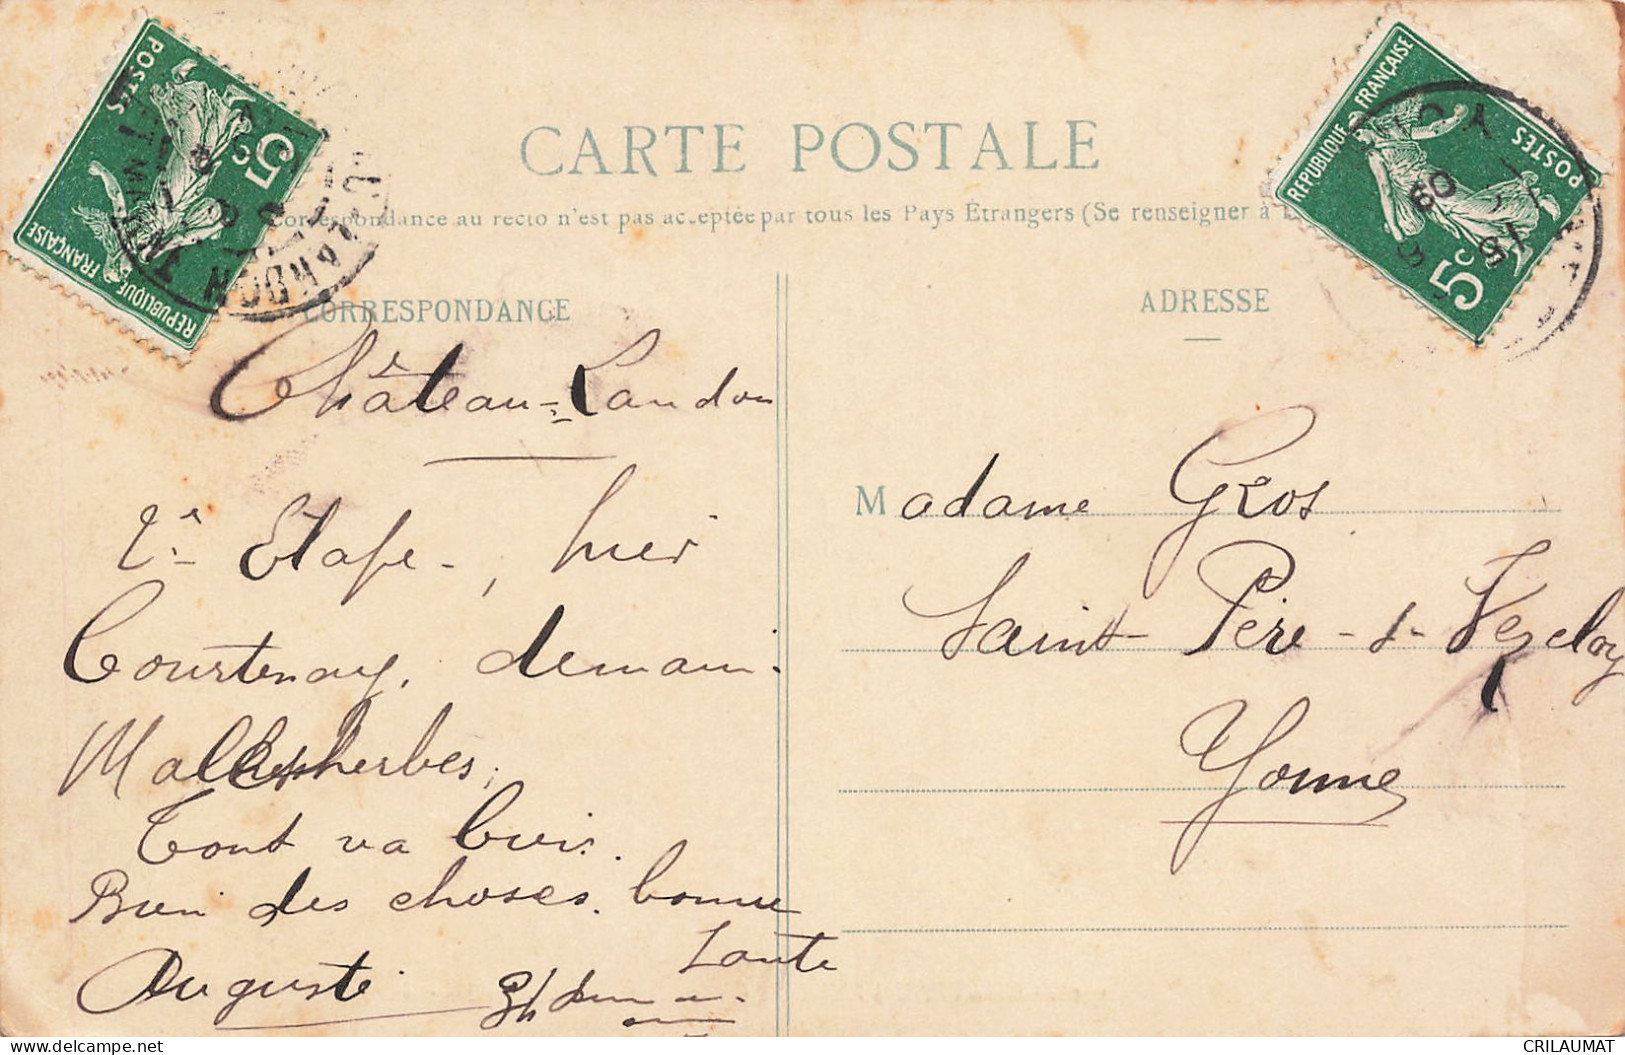 CARTE POSTALE
Correspondance au recto n'est pas acceptée par tous les Pays Étrangers (Se renseigner à
CORRESPONDANCE
ADRESSE
RÉPUBLIQUE FRANÇAISE
POSTES
5c
RÉPUBLIQUE FRANÇAISE
POSTES
5c
Château-Landon
2e Etape -, hier
Courtenay, demain
Malesherbes,
Tout va bien.
Bien des choses. bonne
Santé
Auguste
Madame Gros
Saint Père-s-Vezelay
Yonne
delcampe.net
CRILAUMAT